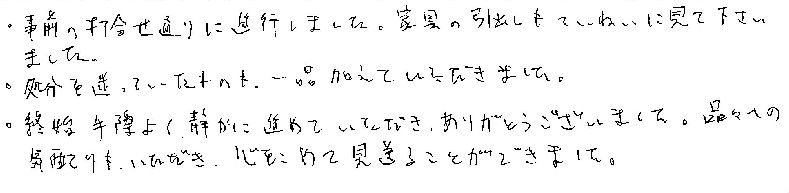 ・事前の打合せ通りに進行しました。家具の引出しもていねいに見て下さい
ました。
・処分を迷っていたものも、一品加えていただきました。
・終始手際よく静かに進めていただき、ありがとうございました。品々への
気配りも、いただき、心をこめて見送ることができました。